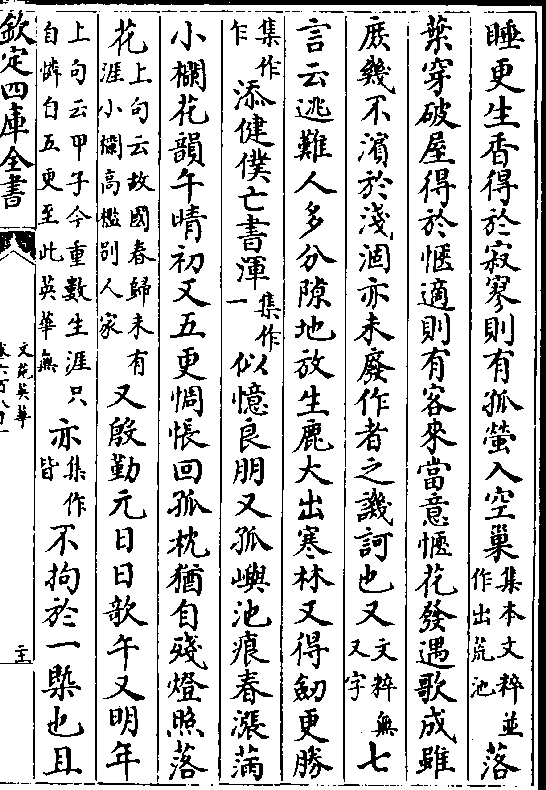 睡更生香得於寂寥則有孤螢入空巢集本文粹並作出荒池落
葉穿破屋得於愜適則有客來當意愜花發遇歌成雖
庶幾不濱於淺涸亦未廢作者之譏訶也又文粹無又字七
言云逃難人多分隙地放生鹿大出寒林又得劒更勝
集作乍添健僕亡書渾集作一似憶良朋又孤嶼池痕春漲滿
小欄花韻午晴初又五更惆悵回孤枕猶自殘燈照落
花上句云故國春歸未有涯小欄高檻别人家又殷勤元日日欹午又明年
上句云甲子今重數生涯只自憐自五更至此英華無亦集作皆不拘於一槩也且
欽定四庫全書
文苑英華